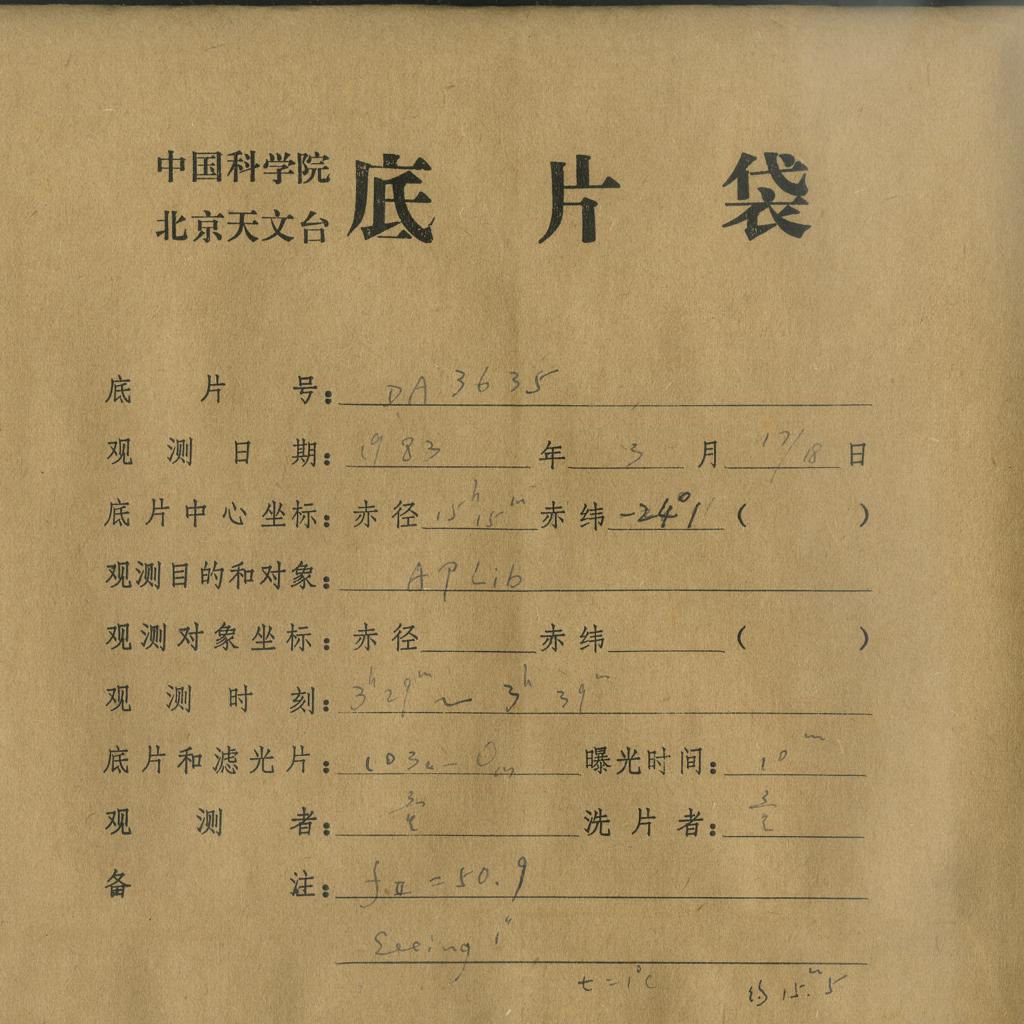 中国科学院
北京天文台
底片袋
底片号：DA 3635
观测日期：1983年3月17/18日
底片中心坐标：赤径15ʰ15ᵐ赤纬-24°1′（ ）
观测目的和对象：AP Lib
观测对象坐标：赤径 赤纬 （ ）
观测时刻：3ʰ29ᵐ～3ʰ39ᵐ
底片和滤光片：103a-O 曝光时间：10ᵐ
观测者： 洗片者：
备注：f.Ⅱ=50.9
Seeing 1″
t=1°C 约15.ᵐ5